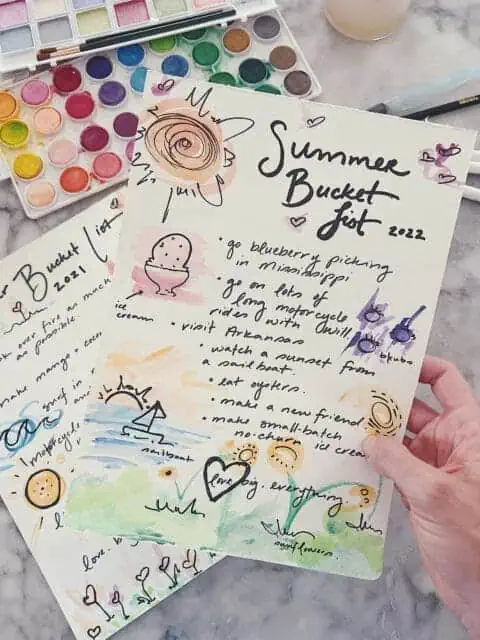 Summer
Bucket
List 2022
• go blueberry picking
in Mississippi
• go on lots of
long motorcycle
rides with Will
• visit Arkansas
• watch a sunset from
a sailboat.
• eat oysters.
• make a new friend
• make small-batch
no-churn ice cream
love big. everything.
ice
cream
sailboat
sunflowers
Bucket List
2021
over fire as much
as possible.
make mango +
surf in
motorcycle
love.